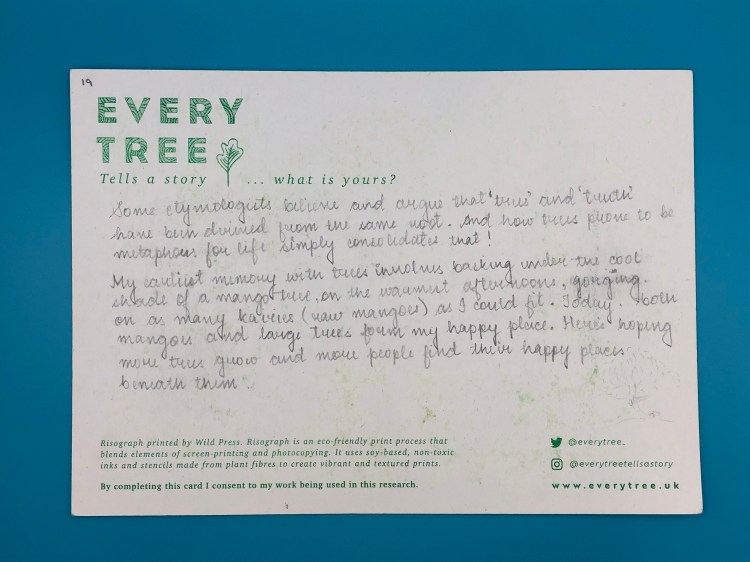 19
EVERY
TREE
Tells a story ... what is yours?
Some etymologists believe and argue that 'trees' and 'truth'
have been derived from the same root. And how trees prone to be
metaphors for life simply consolidates that!
My earliest memory with trees involves backing under the cool
shade of a mango tree, on the warmest afternoons, gorging
on as many kairies (raw mangoes) as I could fit. Today, both
mangoes and large trees form my happy place. Here's hoping
more trees grow and more people find their happy places
beneath them.
Risograph printed by Wild Press. Risograph is an eco-friendly print process that
blends elements of screen-printing and photocopying. It uses soy-based, non-toxic
inks and stencils made from plant fibres to create vibrant and textured prints.
By completing this card I consent to my work being used in this research.
@everytree_
@everytreetellsastory
www.everytree.uk